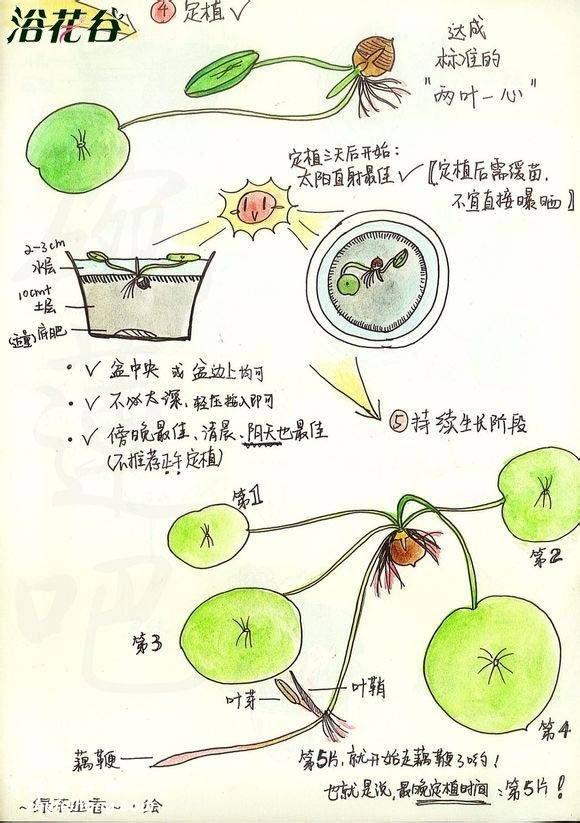 浴花谷
④ 定植 ✓
达成
标准的
"两叶一心"
定植三天后开始:
太阳直射最佳 ✓
【定植后需缓苗,
不宜直接曝晒】
2-3cm
水层
10cm↑
土层
(适量)底肥
· ✓ 盆中央 或 盆边上均可
· ✓ 不必太深,轻压按入即可
· ✓ 傍晚最佳、清晨、阴天也最佳
(不推荐正午定植)
⑤ 持续生长阶段
第1
第2
第3
第4
叶芽
叶鞘
藕鞭
第5片,就开始走藕鞭了哟!
也就是说,最晚定植时间:第5片!
绘